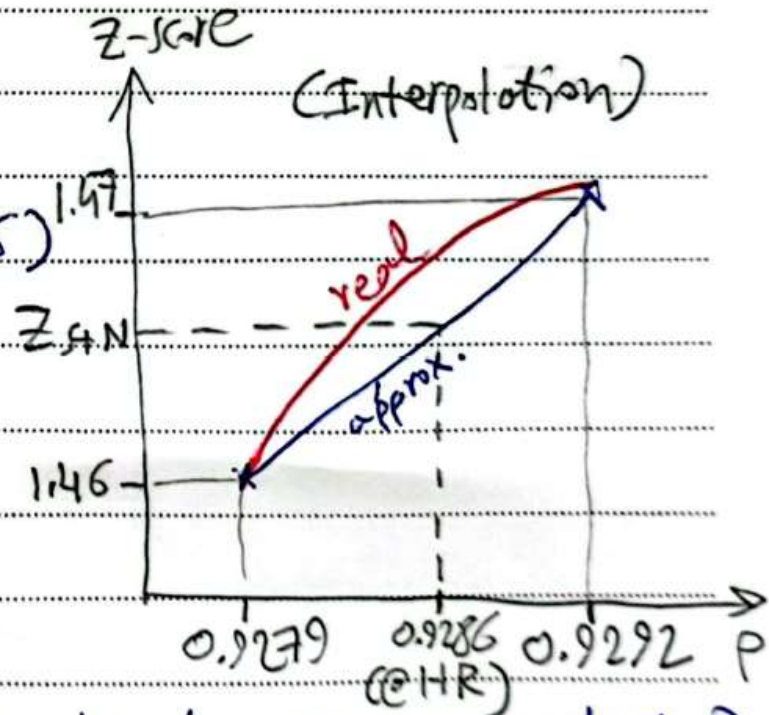 Z-score
(Interpolation)
1.47
real
Z s+N
approx.
1.46
0.9279 0.9286 0.9292 P
(@HR)